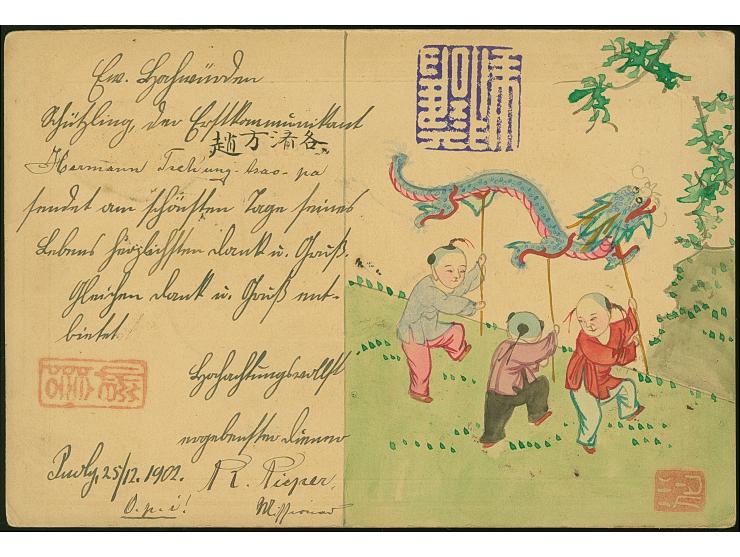 Ew. Hochwürden
Schützling, der Erstkommunikant
趙方濟各
Hermann Tschung-hao-pa
sendet am schönsten Tage seines
Lebens herzlichsten Dank u. Gruß.
Gleichen Dank u. Gruß ent-
bietet
Hochachtungsvollst
ergebenster Diener
Puoly, 25/12. 1902. R. Pieper,
O.p.i.! Missionar